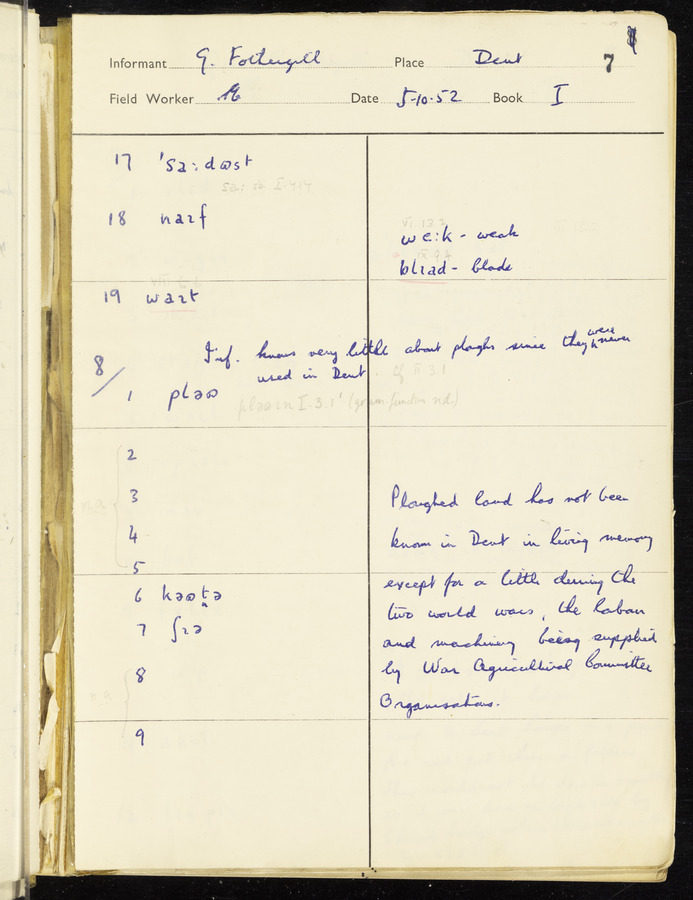 Informant G. Fothergill Place Dent 7
Field Worker Date 5-10-52 Book I
17 'saːdʊst
18 naɪf
we:k - weak
blɪad - blade
19 waɪt
Inf. knows very little about ploughs since they were never
used in Dent. cf II 3.1
8/
1 pləʊ
2
3
4
5
Ploughed land has not been
known in Dent in living memory
except for a little during the
two world wars, the labour
and machinery being supplied
by War Agricultural Committee
Organisations.
6 kəʊtə
7 ʃɪə
8
9